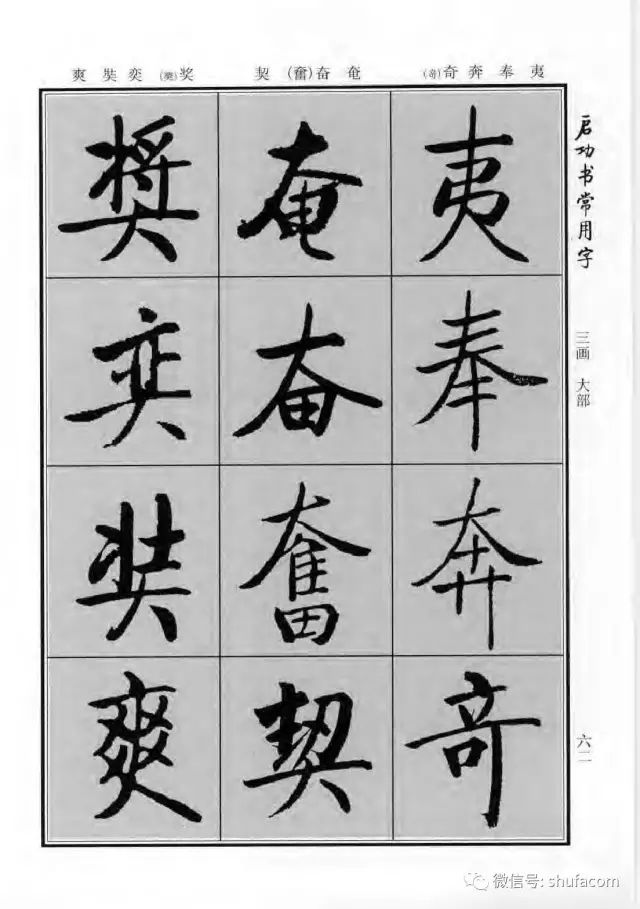 爽奘奕(奬)奖 契(奮)奋奄 (竒)奇奔奉夷
启功书常用字
三画 大部
夷
奉
奔
竒
奄
奋
奮
契
奬
奕
奘
爽
六二
微信号: shufacom